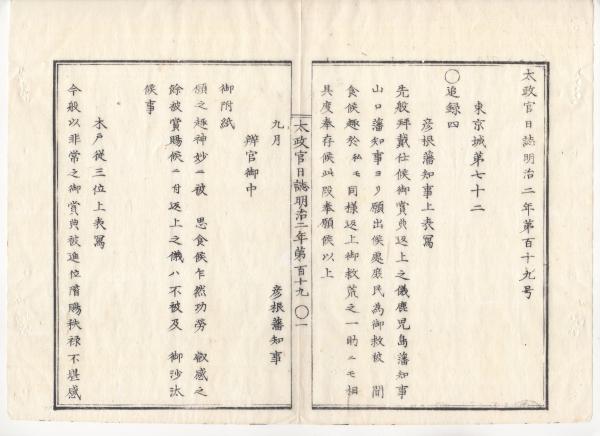 太政官日誌明治二年第百十九号
東京城第七十二
○追録四
彦根藩知事上表冩
先般拜戴仕候御賞典返上之儀鹿児島藩知事
山口藩知事ヨリ願出候處庶民為御救被　聞
食候趣於私モ同様返上御救荒之一助ニモ相
具度奉存候此段奉願候以上
九月　　　彦根藩知事
辨官御中
御附紙
願之趣神妙ニ被　思食候乍然功勞　叡感之
餘被賞賜候ニ付返上之儀ハ不被及　御沙汰
候事
木戸従三位上表冩
今般以非常之御賞典被進位階賜秩禄不堪感
太政官日誌明治二年第百十九　○一